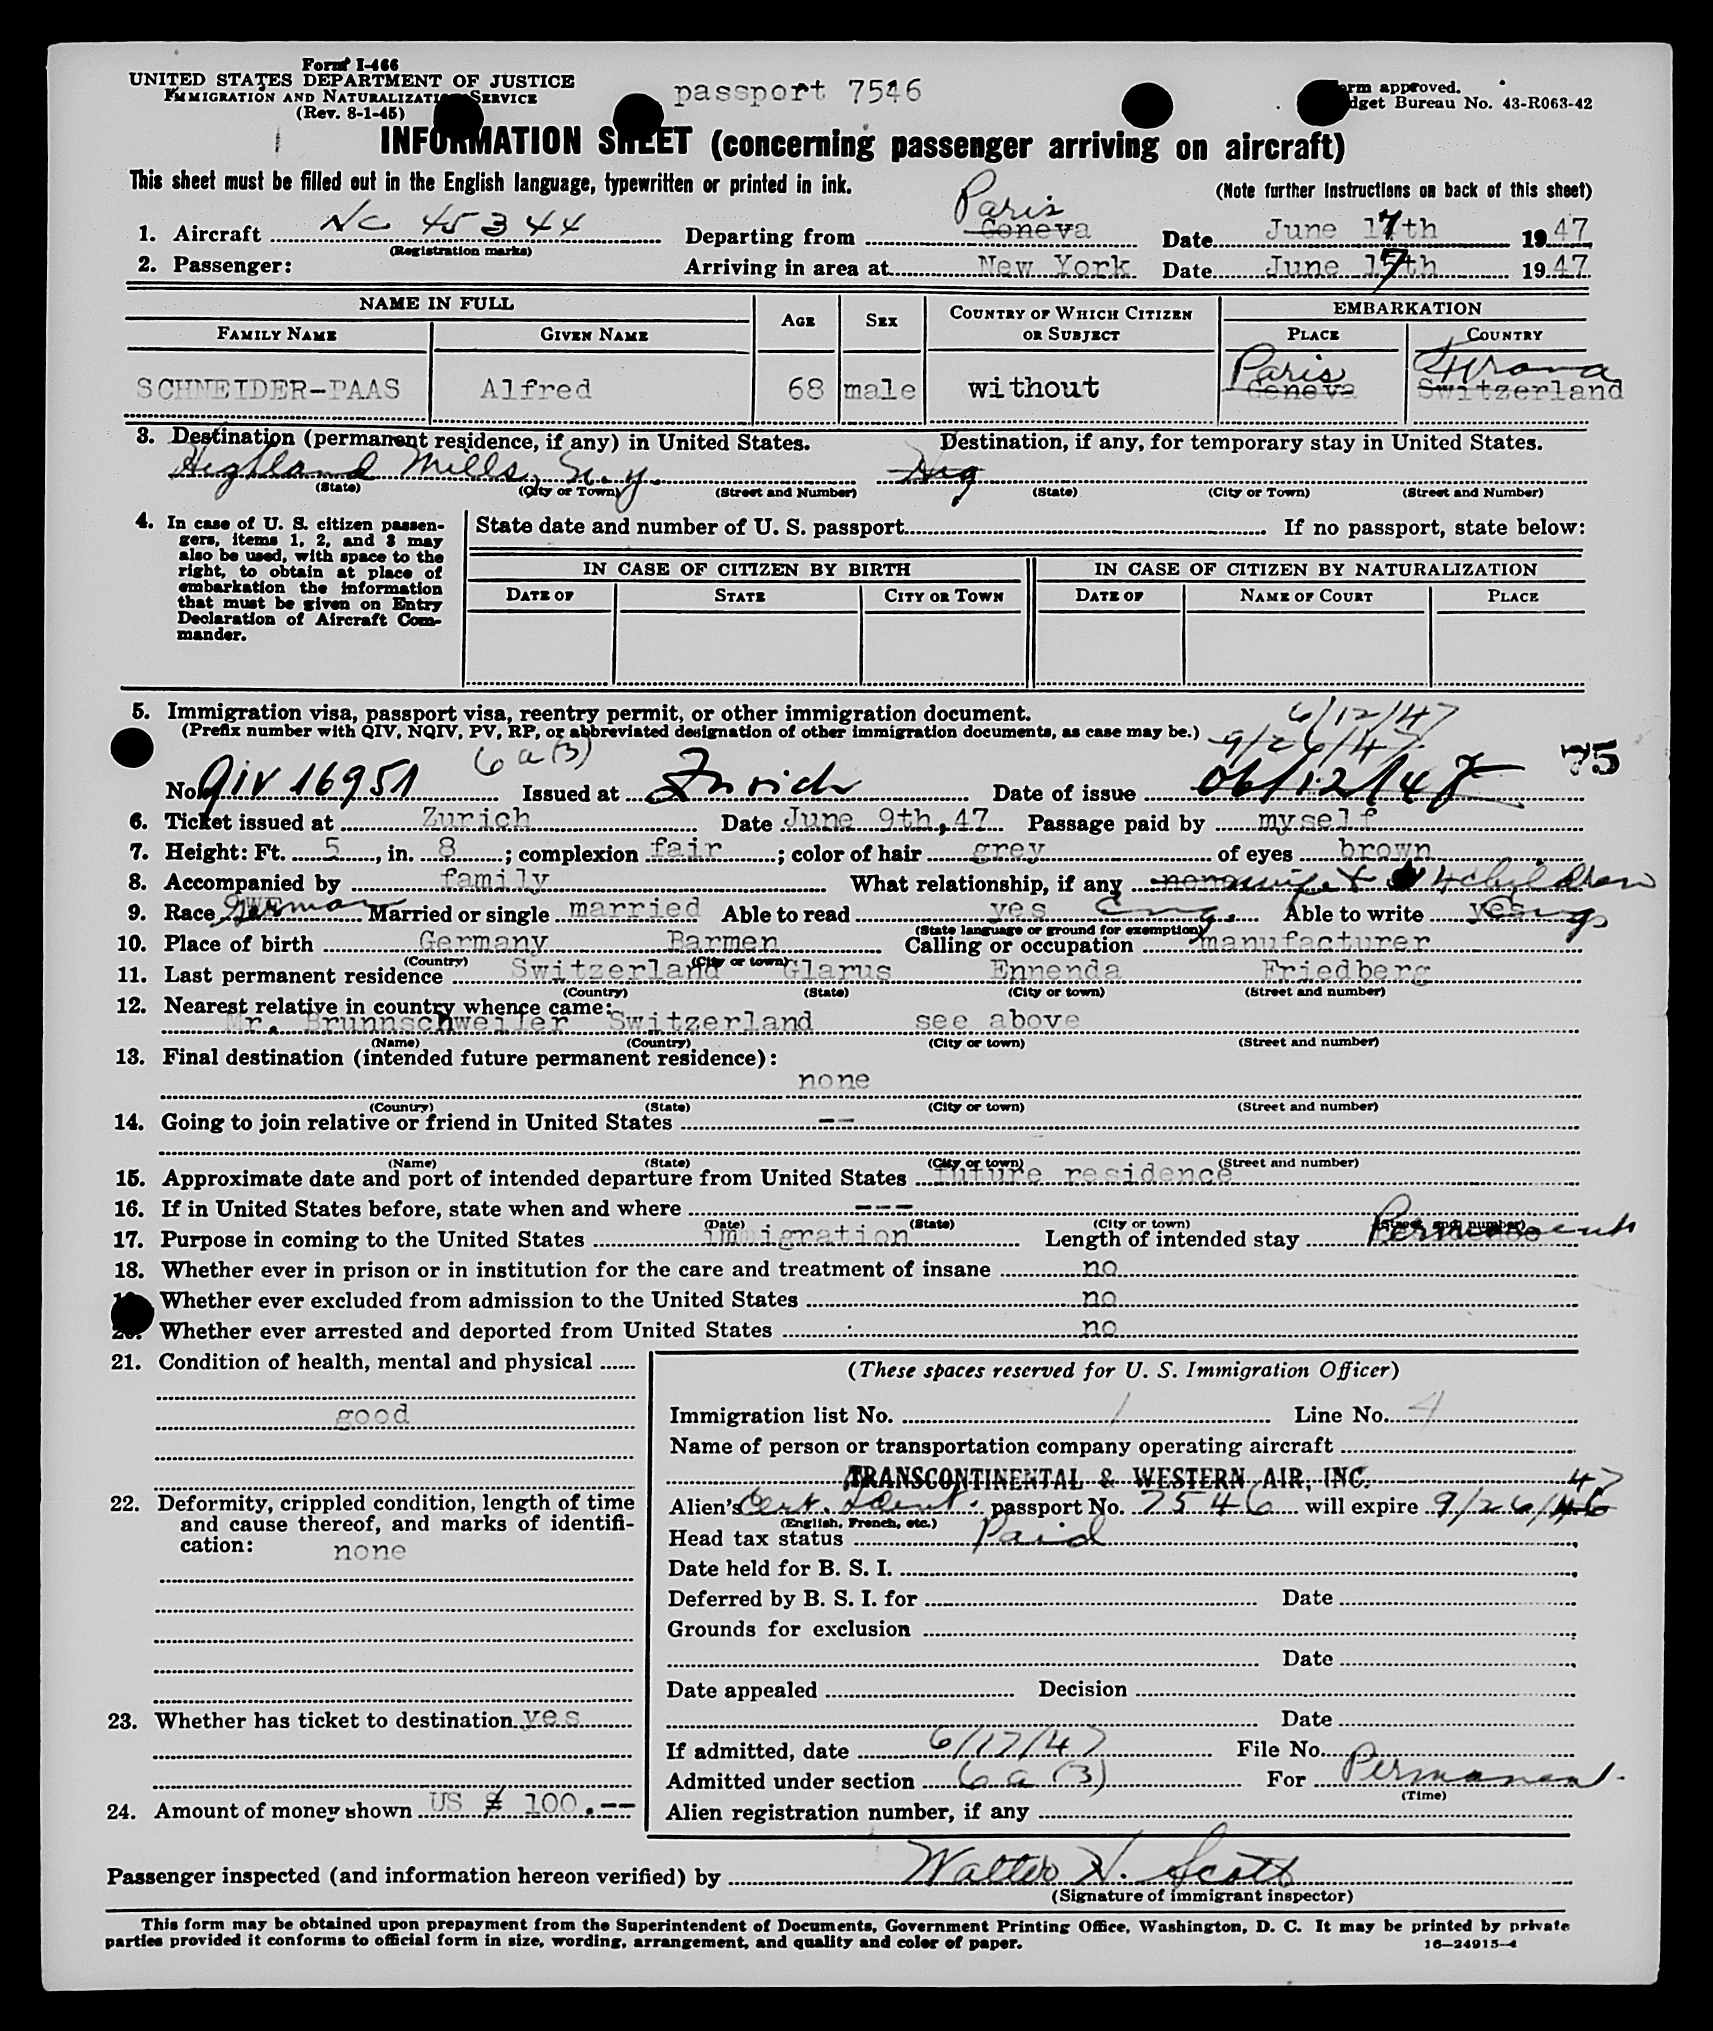 Form I-466
UNITED STATES DEPARTMENT OF JUSTICE
IMMIGRATION AND NATURALIZATION SERVICE
(Rev. 8-1-45)
passport 7546
Form approved.
Budget Bureau No. 43-R063-42
INFORMATION SHEET (concerning passenger arriving on aircraft)
This sheet must be filled out in the English language, typewritten or printed in ink.
(Note further instructions on back of this sheet)
Paris
1. Aircraft NC 45344 Departing from Geneva Date June 17th 1947
(Registration marks)
2. Passenger: Arriving in area at New York Date June 17th 1947
NAME IN FULL AGE SEX COUNTRY OF WHICH CITIZEN OR SUBJECT EMBARKATION
FAMILY NAME GIVEN NAME PLACE COUNTRY
Paris
SCHNEIDER-PAAS Alfred 68 male without Geneva Switzerland
3. Destination (permanent residence, if any) in United States. Destination, if any, for temporary stay in United States.
Highland Mills, N.Y. Hig
(State) (City or Town) (Street and Number) (State) (City or Town) (Street and Number)
4. In case of U. S. citizen passengers, items 1, 2, and 3 may also be used, with space to the right, to obtain at place of embarkation the information that must be given on Entry Declaration of Aircraft Commander.
State date and number of U. S. passport If no passport, state below:
IN CASE OF CITIZEN BY BIRTH IN CASE OF CITIZEN BY NATURALIZATION
DATE OF STATE CITY OR TOWN DATE OF NAME OF COURT PLACE
5. Immigration visa, passport visa, reentry permit, or other immigration document.
(Prefix number with QIV, NQIV, PV, RP, or abbreviated designation of other immigration documents, as case may be.)
6/12/47
9/26/47
6a(3)
75
No. QIV 16951 Issued at Zurich Date of issue 06/12/47
6. Ticket issued at Zurich Date June 9th, 47 Passage paid by myself
7. Height: Ft. 5, in. 8; complexion fair; color of hair grey of eyes brown
8. Accompanied by family What relationship, if any none wife + 4 children
9. Race German Married or single married Able to read yes Eng. Able to write yes Eng
(State language or ground for exemption)
10. Place of birth Germany Barmen Calling or occupation manufacturer
(Country) (City or town)
11. Last permanent residence Switzerland Glarus Ennenda Friedberg
(Country) (State) (City or town) (Street and number)
12. Nearest relative in country whence came:
Mr. Brunnschweiler Switzerland see above
(Name) (Country) (City or town) (Street and number)
13. Final destination (intended future permanent residence):
none
(Country) (State) (City or town) (Street and number)
14. Going to join relative or friend in United States --
(Name) (State) (City or town) (Street and number)
15. Approximate date and port of intended departure from United States future residence
16. If in United States before, state when and where ---
(Date) (State) (City or town) (Street and number)
17. Purpose in coming to the United States immigration Length of intended stay Permanent
18. Whether ever in prison or in institution for the care and treatment of insane no
19. Whether ever excluded from admission to the United States no
20. Whether ever arrested and deported from United States no
21. Condition of health, mental and physical
good
22. Deformity, crippled condition, length of time and cause thereof, and marks of identification: none
23. Whether has ticket to destination yes
24. Amount of money shown US $ 100.--
(These spaces reserved for U. S. Immigration Officer)
Immigration list No. 1 Line No. 4
Name of person or transportation company operating aircraft
TRANSCONTINENTAL & WESTERN AIR, INC.
47
Alien's Cert. Ident. passport No. 7546 will expire 9/26/46
(English, French, etc.)
Head tax status Paid
Date held for B. S. I.
Deferred by B. S. I. for Date
Grounds for exclusion
Date
Date appealed Decision
Date
If admitted, date 6/17/47 File No.
Admitted under section 6a(3) For Permanent
(Time)
Alien registration number, if any
Passenger inspected (and information hereon verified) by Walter H. Scott
(Signature of immigrant inspector)
This form may be obtained upon prepayment from the Superintendent of Documents, Government Printing Office, Washington, D. C. It may be printed by private
parties provided it conforms to official form in size, wording, arrangement, and quality and color of paper.
16-24915-4